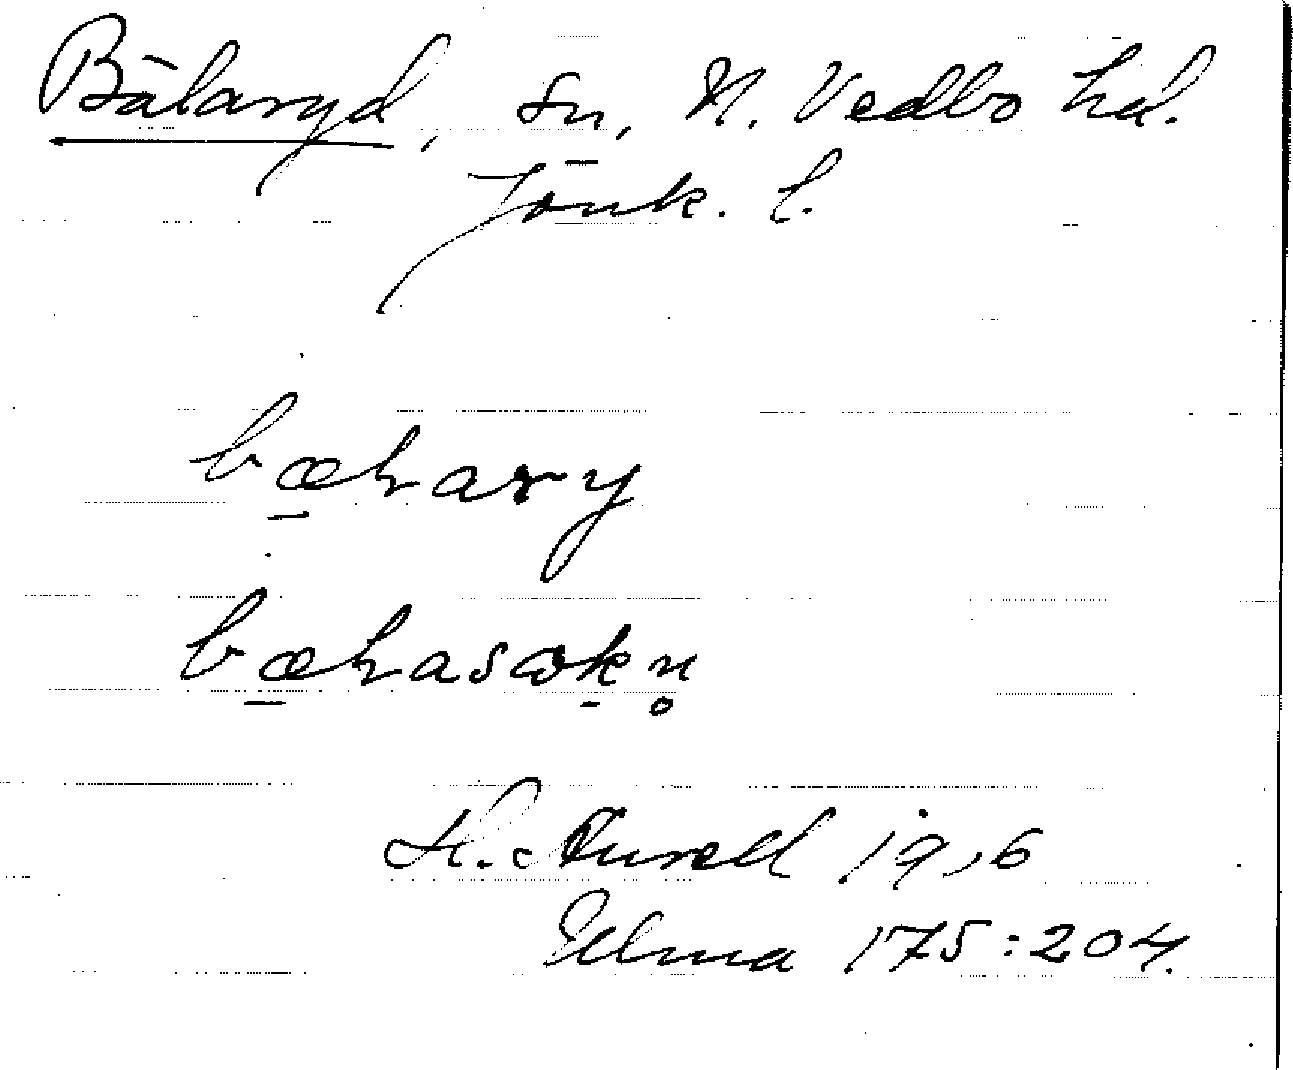 Bälaryd, sn, N. Vedbo hd.
Jönk. l.
bæɫary
bæɫasωkn̥
H. Aurell 1916
Ulma 175:204.